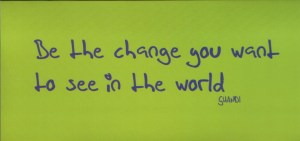 Be the change you want
to see in the world